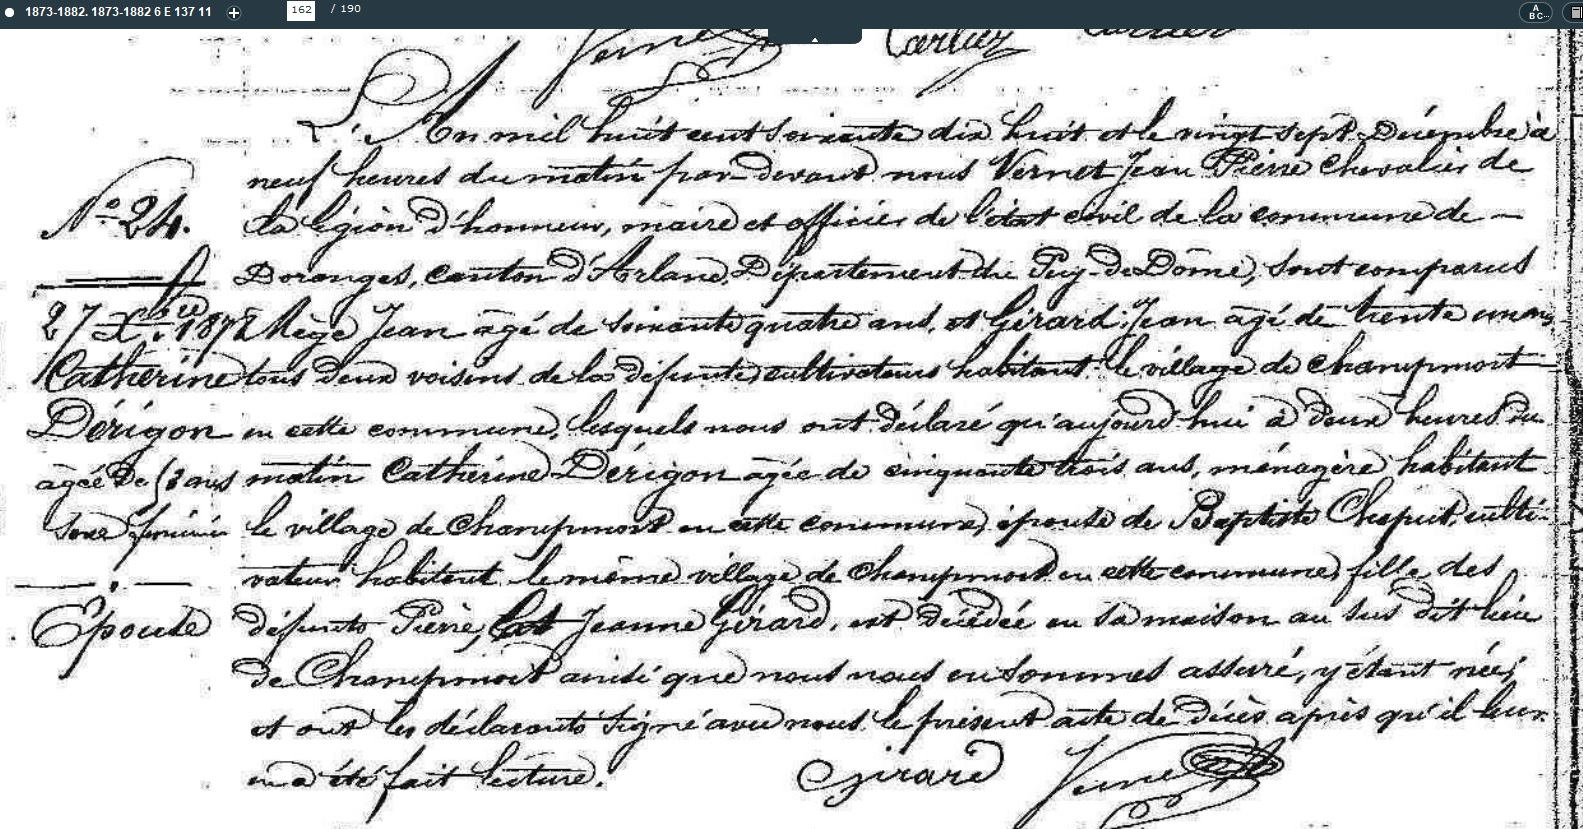 1873-1882. 1873-1882 6 E 137 11
162 / 190
Vernet
Carlier
L'An mil huit cent soixante dix huit et le vingt sept Décembre à
neuf heures du matin par-devant nous Vernet Jean Pierre Chevalier de
N° 24.
la légion d'honneur, maire et officier de l'état civil de la commune de –
Doranges, canton d'Arlanc, Département du Puy-de-Dôme, sont comparus
27 Xbre 1878
Mège Jean agé de soixante quatre ans, et Gérard Jean agé de trente un ans
Catherine
tous deux voisins de la défunte, cultivateurs habitant le village de Champmort
Dérigon
en cette commune, lesquels nous ont déclaré qu'aujourd'hui à deux heures du
agée de 53 ans
matin Catherine Dérigon agée de cinquante trois ans, ménagère habitant
Sexe féminin
le village de Champmort en cette commune, épouse de Baptiste Chapuit, culti-
vateur habitant le même village de Champmort en cette commune, fille des
Épouse
défunts Pierre, et Jeanne Gérard, est décédée en sa maison au sus dit lieu
de Champmort ainsi que nous nous en sommes assuré, y étant née;
et ont les déclarants signé avec nous le présent acte de décès après qu'il leur
en a été fait lecture.
Girard
Vernet